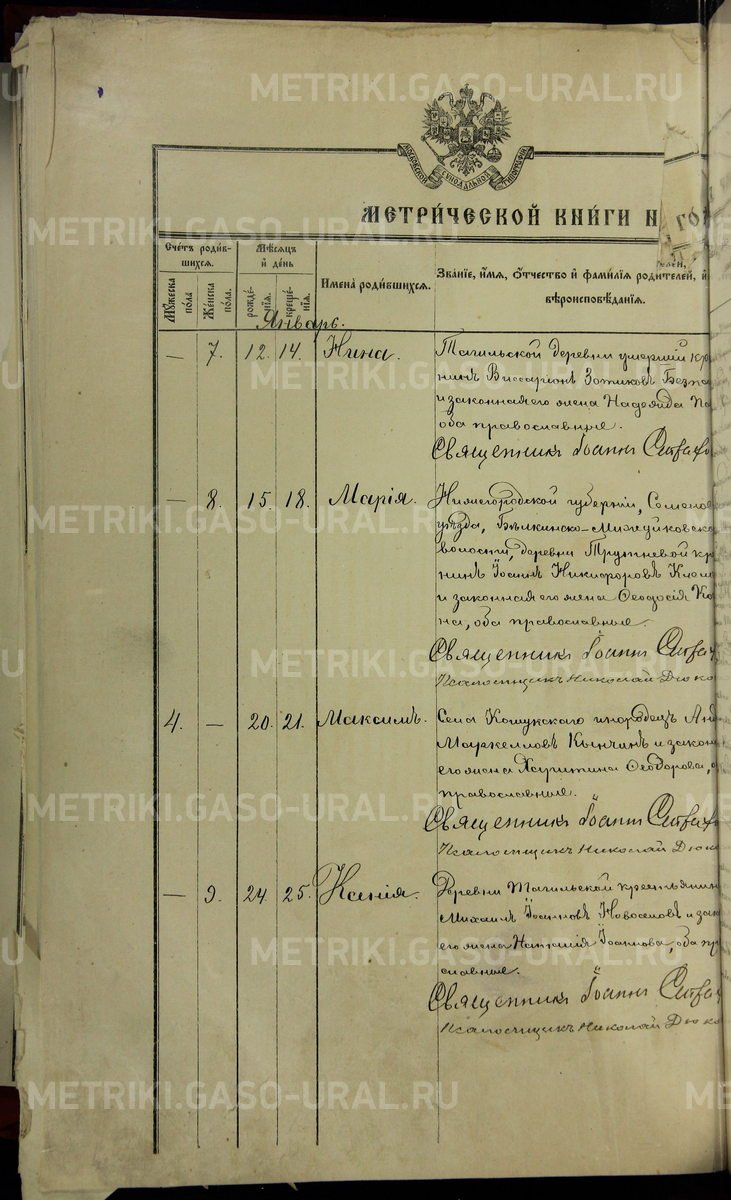 METRIKI.GASO-URAL.RU
МОСКОВСКОЙ СѴНОДАЛЬНОЙ ТИПОГРАФІИ
МЕТРИ́ЧЕСКОЙ КНИ́ГИ Н
Сче́тъ роди́в-
шихся.
Му́жеска
по́ла
Же́нска
по́ла.
Мѣ́сяцъ
и҆ де́нь
рожде́-
нїя.
креще́-
нїя.
И҆мена̀ роди́вшихся.
Зва́нїе, и҆́мя, ѻ҆́тчество и҆ фами́лїя роди́телей, и҆
вѣроисповѣ́данїя.
Январь.
— 7. 12. 14. Нина.
Тагильской деревни умершій кр
нинъ Виссаріонъ Зотиковъ
и законная его жена Надежда
оба православные.
Священникъ Іоаннъ
— 8. 15. 18. Марія.
Нижегородской губерніи, Семенов
уѣзда,
волости, деревни Трутневой кр
нинъ Іоаннъ Никифоровъ
и законная его жена Ѳеодосія
на, оба православные.
Священникъ Іоаннъ
Псаломщикъ Николай Дюко
4. — 20. 21. Максимъ.
Села Кошукскаго инородецъ Анд
Маркелловъ Кынчинъ и закон
его жена Харитина Ѳеодорова, о
православные.
Священникъ Іоаннъ
Псаломщикъ Николай Дюко
— 9. 24. 25. Ксенія.
Деревни Тагильской крестьянин
Михаилъ Іоанновъ Новоселовъ и зак
его жена Наталія Іоаннова, оба пр
славные.
Священникъ Іоаннъ
Псаломщикъ Николай Дюко